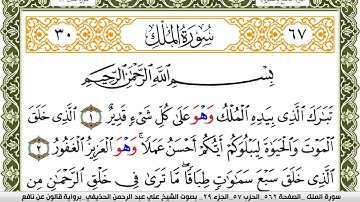 ٣٠ سُورَةُ المُلْكِ ٦٧
بِسْمِ اللَّهِ الرَّحْمَٰنِ الرَّحِيمِ
تَبَٰرَكَ الَّذِي بِيَدِهِ الْمُلْكُ وَهْوَ عَلَىٰ كُلِّ شَيْءٍ قَدِيرٌ ١ الَّذِي خَلَقَ
الْمَوْتَ وَالْحَيَوٰةَ لِيَبْلُوَكُمْ أَيُّكُمْ أَحْسَنُ عَمَلًا وَهْوَ الْعَزِيزُ الْغَفُورُ ٢
الَّذِي خَلَقَ سَبْعَ سَمَٰوَٰتٍ طِبَاقًا مَّا تَرَىٰ فِي خَلْقِ الرَّحْمَٰنِ مِن
سورة الملك - الصفحة ٥٦٢ - الحزب ٥٧ - الجزء ٢٩ - بصوت الشيخ علي عبد الرحمن الحذيفي - برواية قالون عن نافع